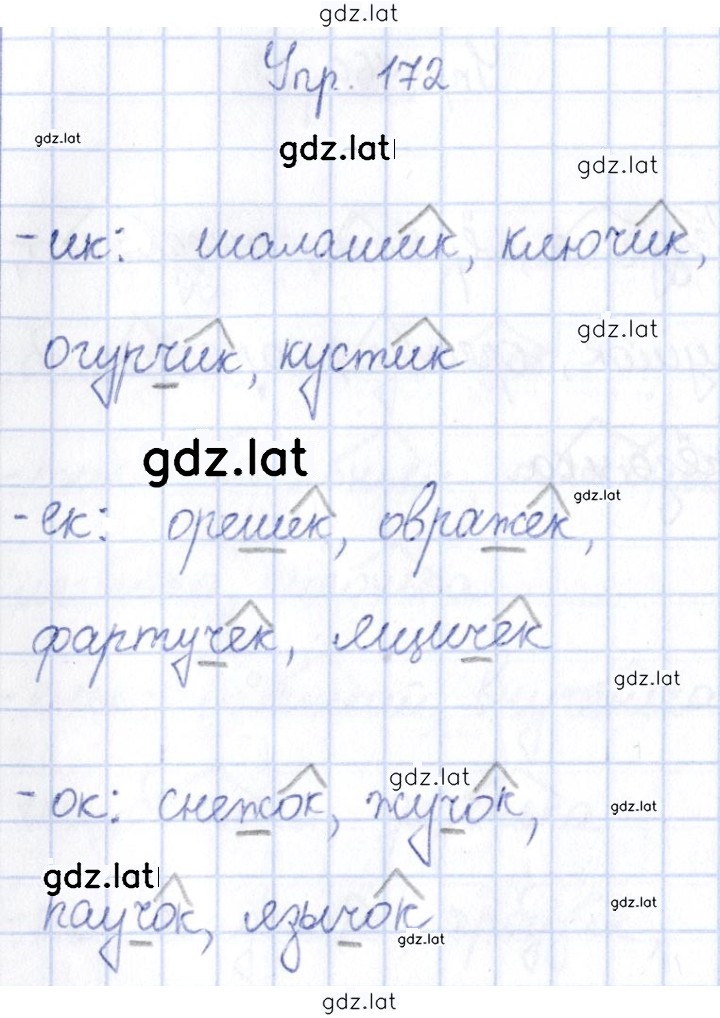 gdz.lat
Упр. 172
gdz.lat
gdz.lat
gdz.lat
-ик: шалашик, ключик,
gdz.lat
огурчик, кустик
gdz.lat
gdz.lat
-ек: орешек, овражек,
фартучек, ящичек
gdz.lat
gdz.lat
-ок: снежок, жучок,
gdz.lat
gdz.lat
gdz.lat
паучок, язычок
gdz.lat
gdz.lat